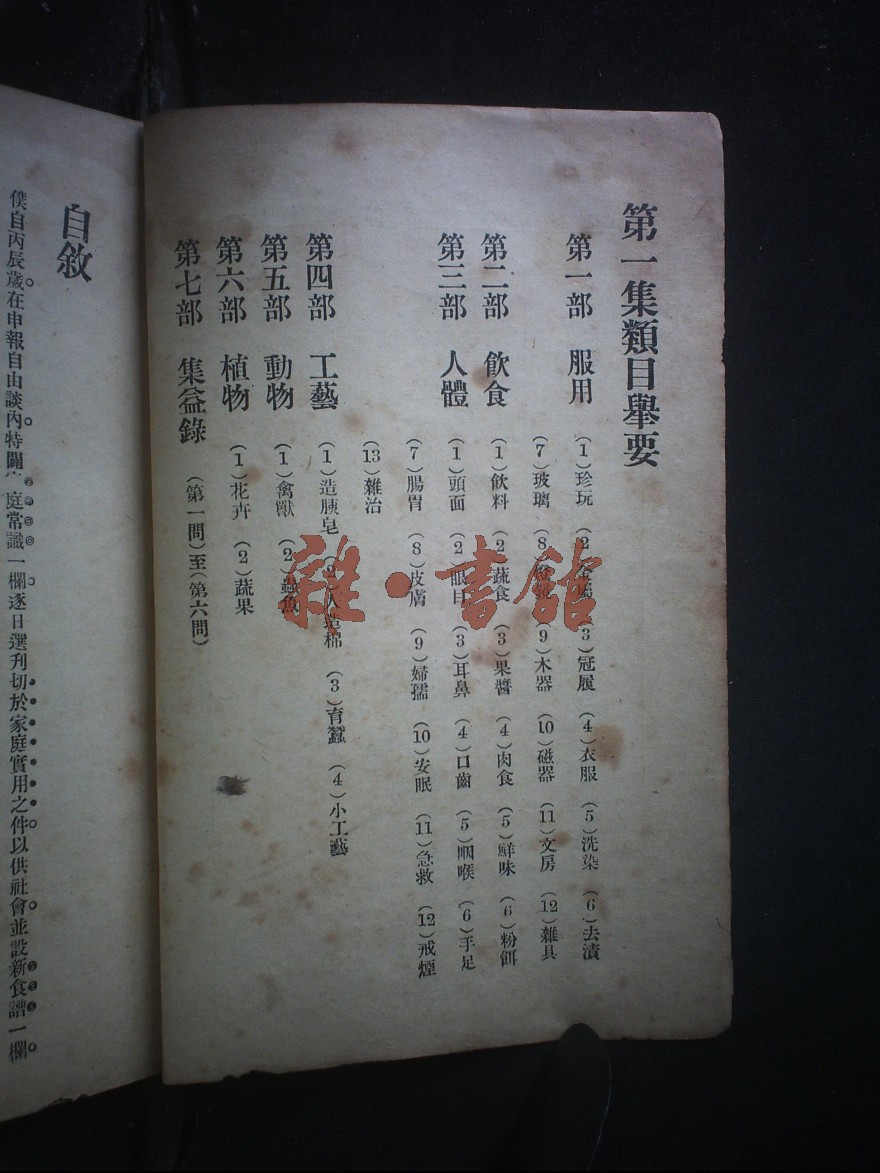 第一集類目舉要
第一部 服用 (1)珍玩 (2)金屬 (3)冠履 (4)衣服 (5)洗染 (6)去漬
(7)玻璃 (8) (9)木器 (10)磁器 (11)文房 (12)雜具
第二部 飲食 (1)飲料 (2)蔬食 (3)果醬 (4)肉食 (5)鮮味 (6)粉餌
第三部 人體 (1)頭面 (2)眼目 (3)耳鼻 (4)口齒 (5)咽喉 (6)手足
(7)腸胃 (8)皮膚 (9)婦孺 (10)安眠 (11)急救 (12)戒煙
(13)雜治
第四部 工藝 (1)造胰皂 (2)人造棉 (3)育蠶 (4)小工藝
第五部 動物 (1)禽獸 (2)蟲魚
第六部 植物 (1)花卉 (2)蔬果
第七部 集益錄 (第一問)至(第六問)
自敘
僕自丙辰歲在申報自由談內特闢 庭常識一欄逐日選刊切於家庭實用之件以供社會並設新食譜一欄
雜·書館